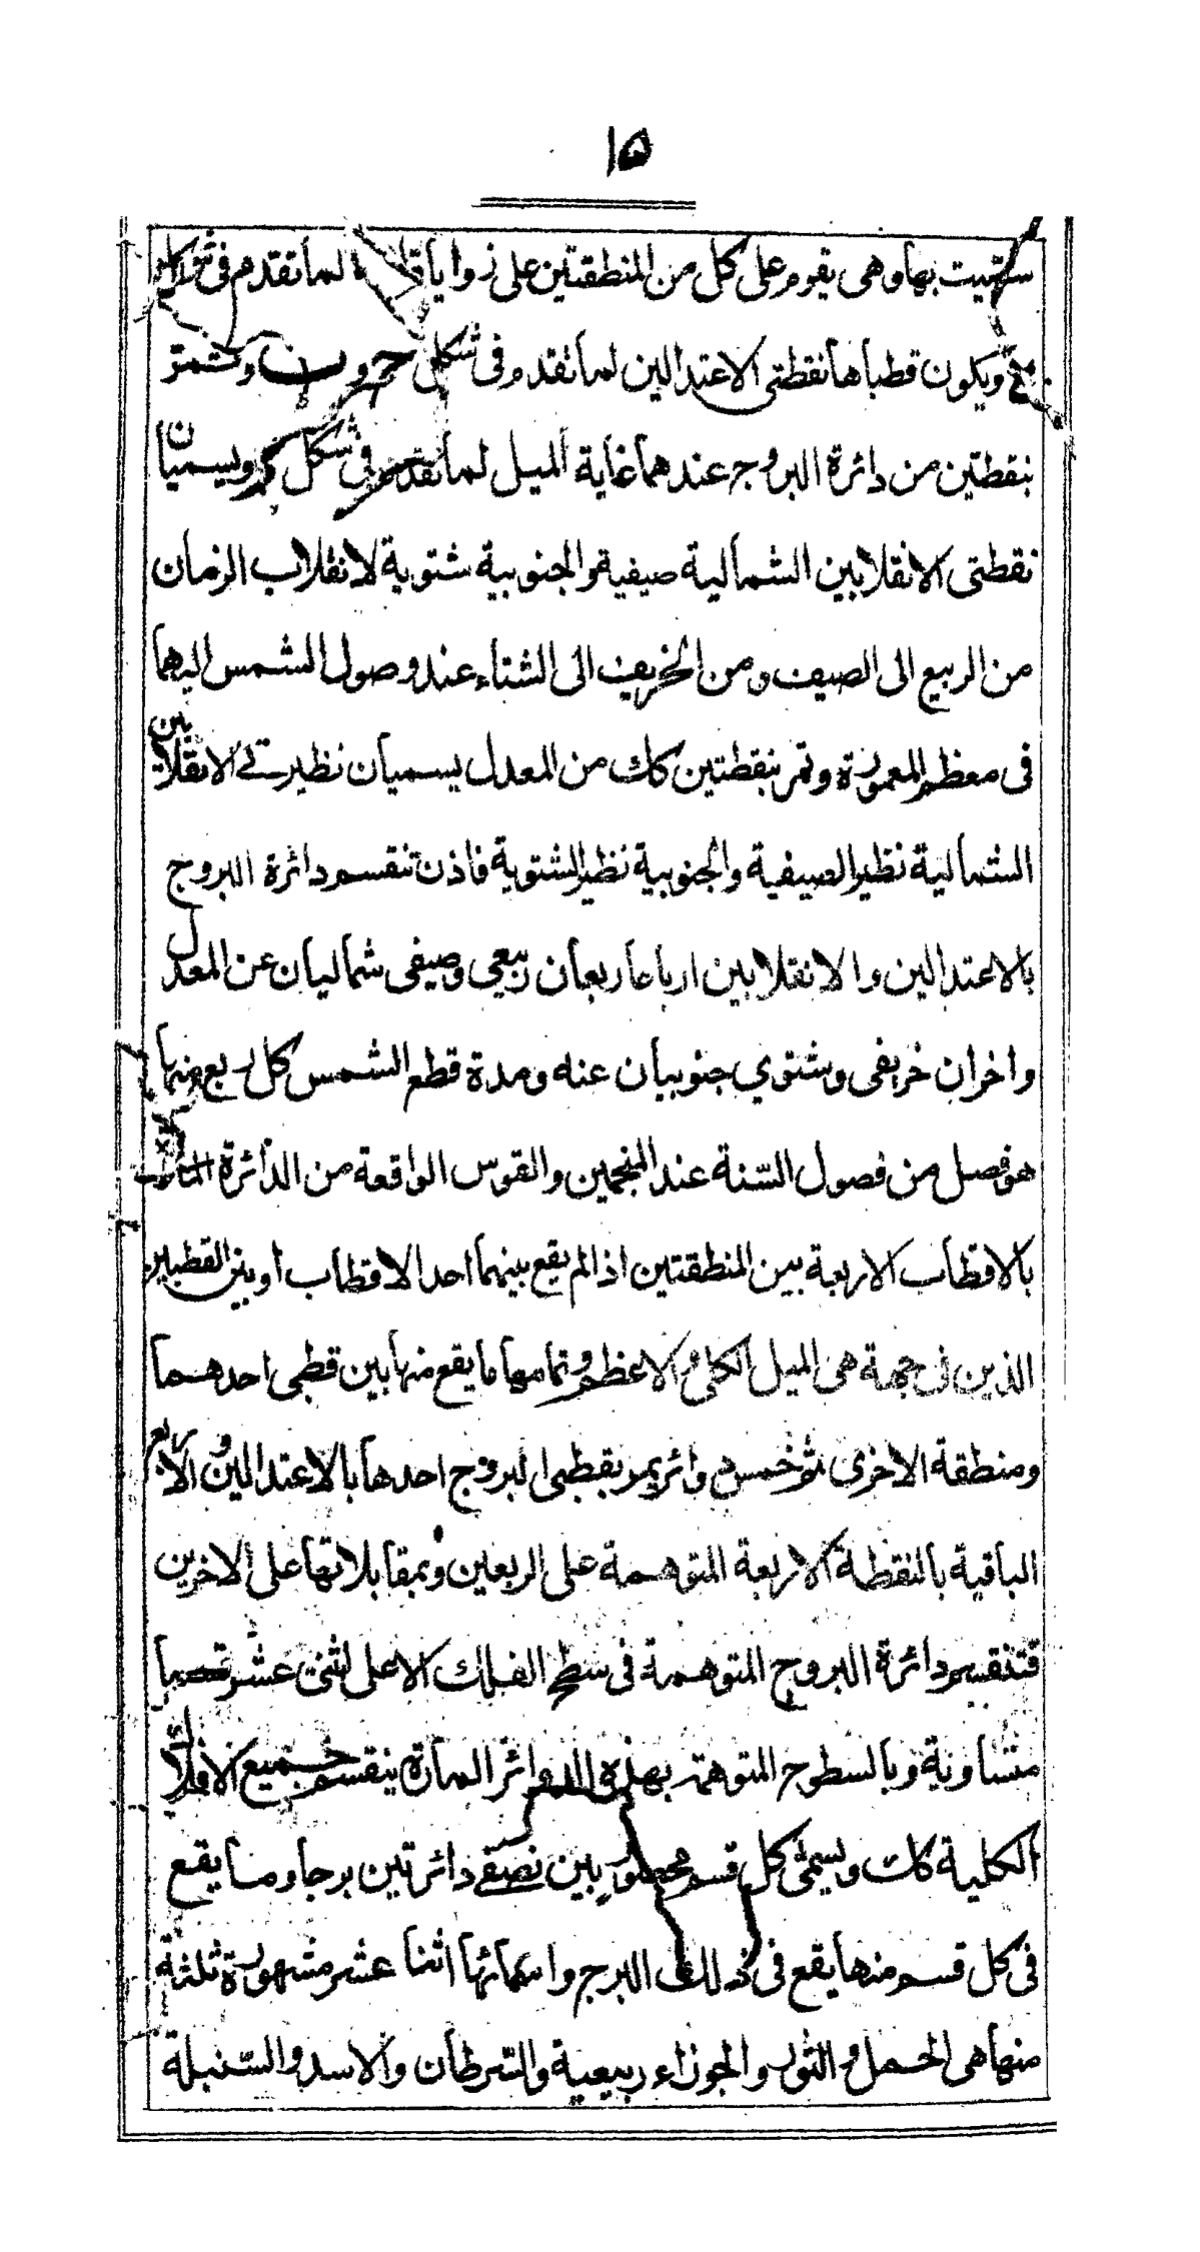 ١٥
سميت بها وهى يقوم على كل من المنطقتين على زوايا لما تقدم فى شكل
ويكون قطباها نقطتى الاعتدالين لما تقدم فى شكل ح و ب وتمر
بنقطتين من دائرة البروج عندهما غاية الميل لما تقدم فى شكل ويسميان
نقطتى الانقلابين الشمالية صيفية والجنوبية شتوية لانقلاب الزمان
من الربيع الى الصيف ومن الخريف الى الشتاء عند وصول الشمس اليهما
فى معظم المعمورة وتمر بنقطتين كك من المعدل يسميان نظيرتے الانقلابين
الشمالية نظير الصيفية والجنوبية نظير الشتوية فاذن تنقسم دائرة البروج
بالاعتدالين والانقلابين ارباعا ربعان ربيعي وصيفى شماليان عن المعدل
واخران خريفى وشتوي جنوبيان عنه ومدة قطع الشمس كل ربع منها
هو فصل من فصول السّنة عند المنجمين والقوس الواقعة من الدائرة المارة
بالاقطاب الاربعة بين المنطقتين اذا لم يقع بينهما احد الاقطاب او بين القطبين
الذين فى جهة هى الميل الكلى والاعظم وتمامها ما يقع منها بين قطبى احدهما
ومنطقة الاخرى ثم خمس دوائر يمر بقطبى البروج احدها بالاعتدالين والاربع
الباقية بالنقطة الاربعة المتوهمة على الربعين وبمقابلاتها على الاخرين
فتنقسم دائرة البروج المتوهمة فى سطح الفلك الاعلى اثنى عشر قسما
متساوية وبالسطوح المتوهمة بهذه الدوائر المارة ينقسم جميع الافلاك
الكلية كك ويسمى كل قسم محصور بين نصفے دائرتين برجا وما يقع
فى كل قسم منها يقع فى ذلك البرج واسمائها اثنا عشر مشهورة ثلثة
منها هى الحمل والثور والجوزاء ربيعية والسرطان والاسد والسّنبلة